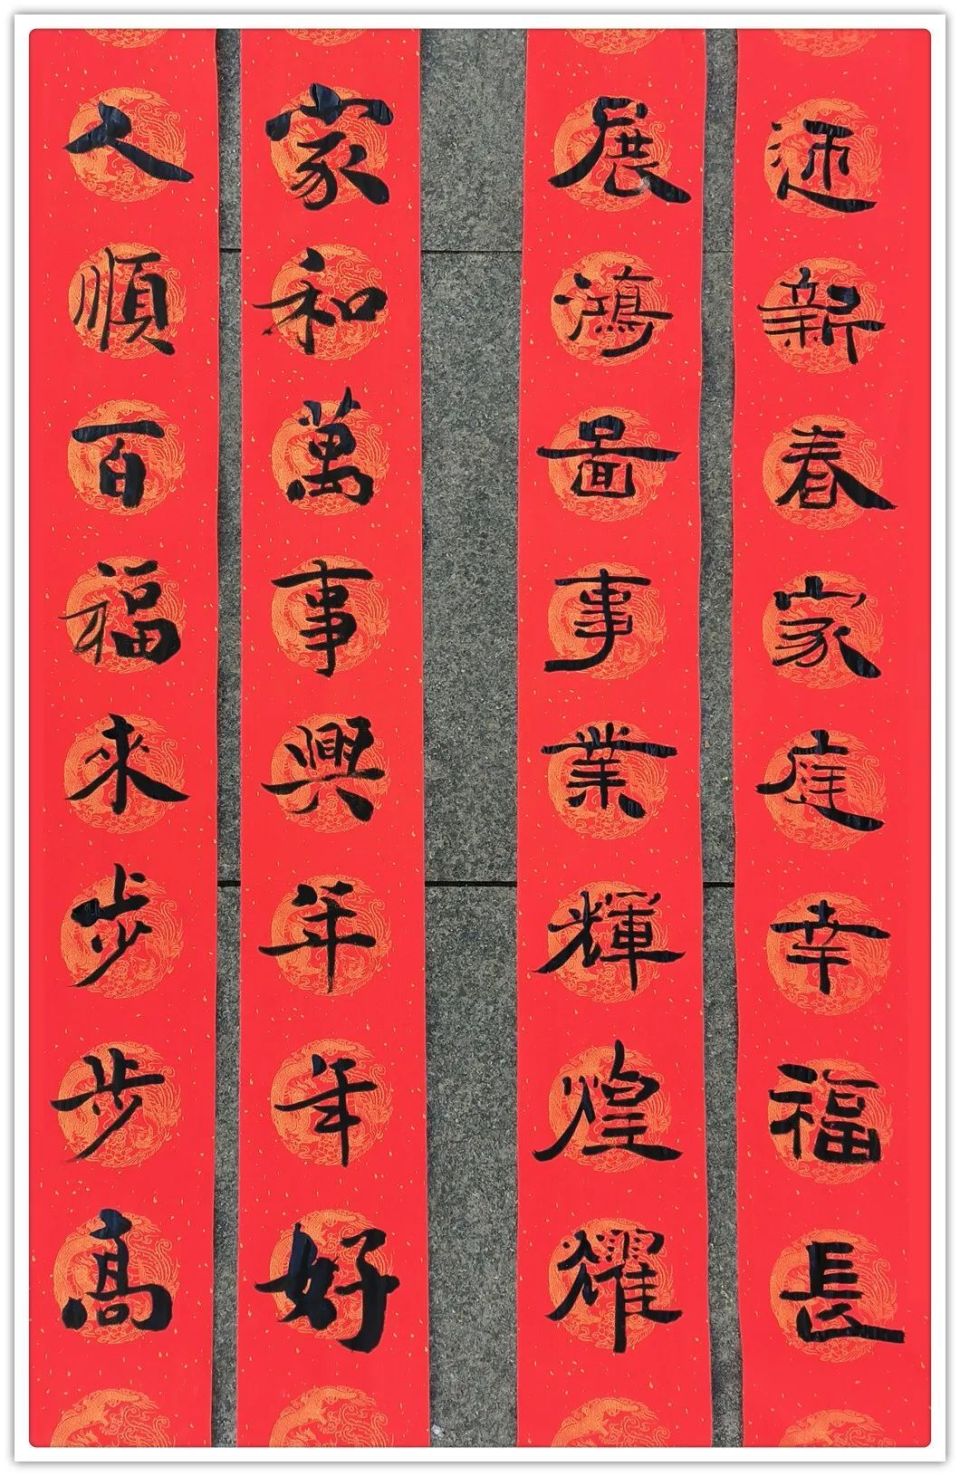 迎新春家庭幸福長
展鴻圖事業輝煌耀
家和萬事興年年好
人順百福來步步高